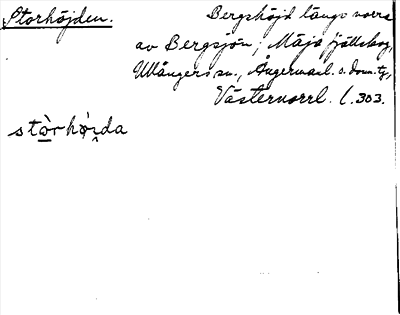 Storhöjden.
Bergshöjd längs norra
av Bergsjön, Mäja fjällskog,
Ullångers sn., Ångermanl. s. dom. tg.,
Västernorrl. l. 303.
stòrhö̀i̯da